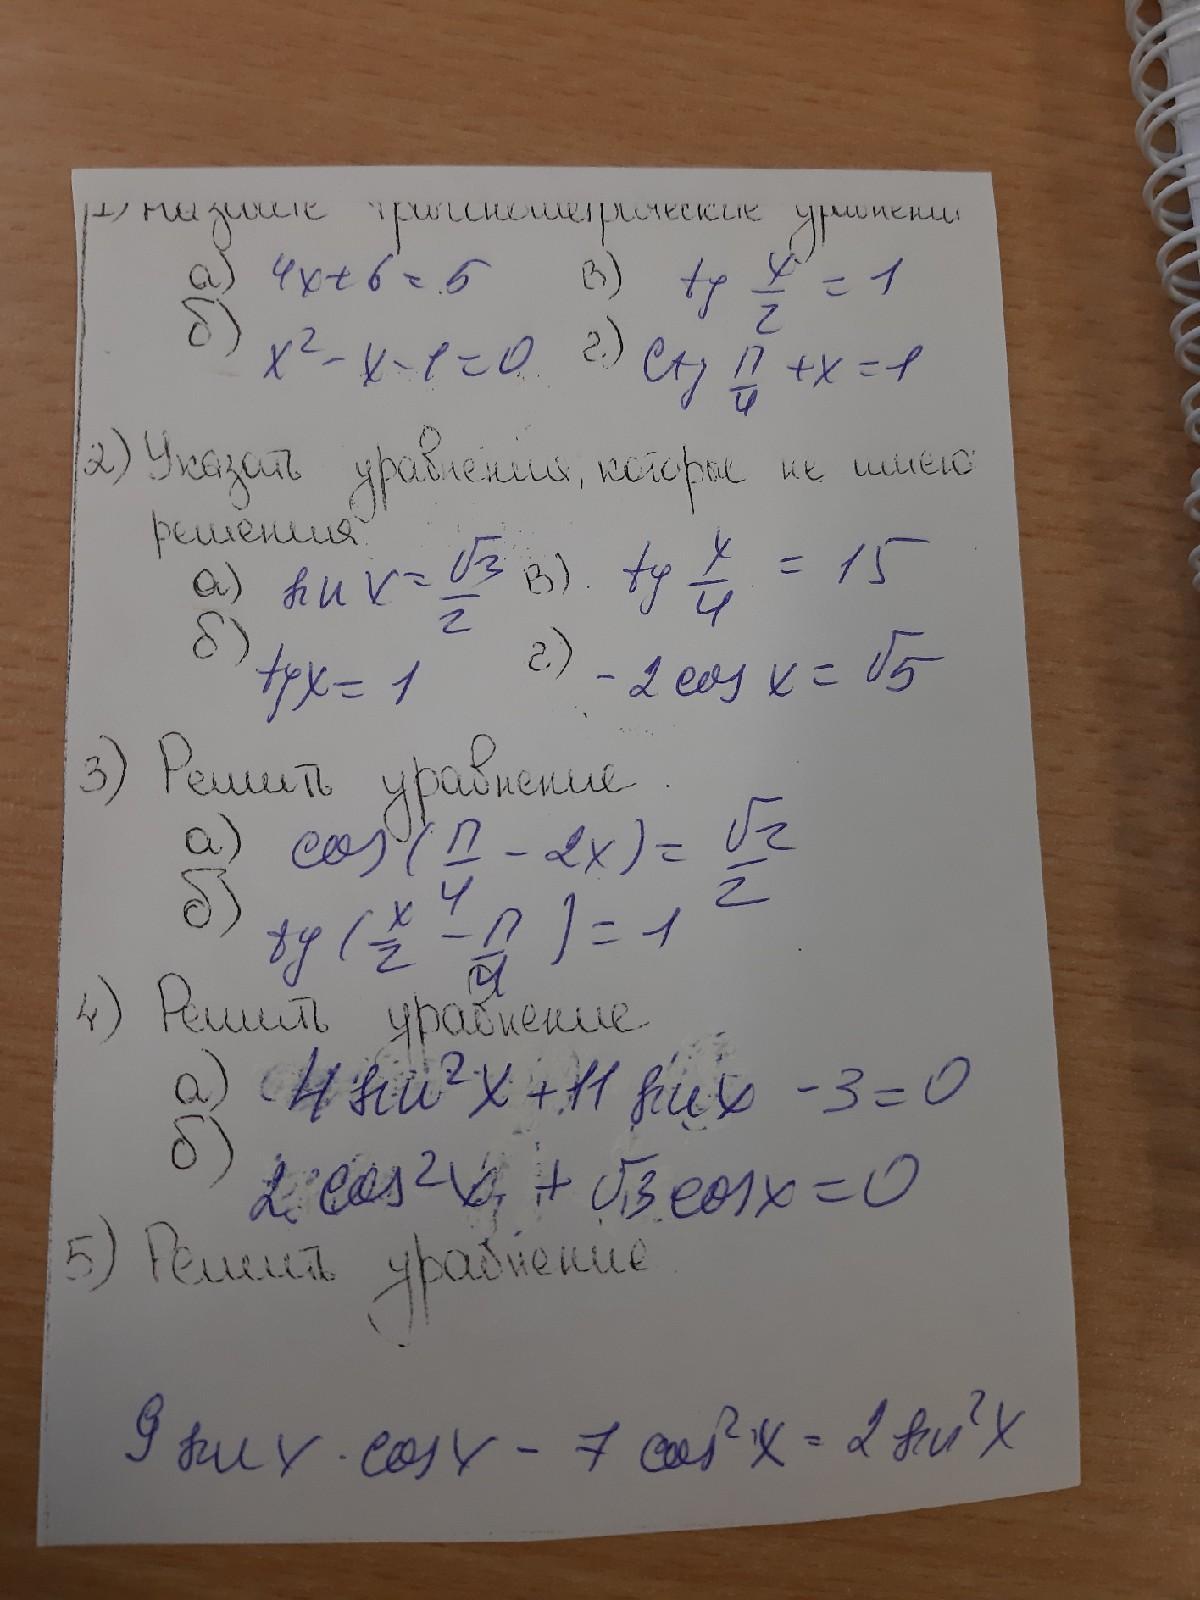 1) Назовите тригонометрические уравнения
а) 4x+6=5 в) tg x/2 = 1
б) x²-x-1=0 г.) ctg π/4 + x = 1
2) Указать уравнения, которые не имею
решения:
а) sin x = √3/2 в) tg x/4 = 15
б) tg x = 1 г.) -2 cos x = √5
3) Решить уравнение.
а) cos(π/4 - 2x) = √2/2
б) tg(x/2 - π/4) = 1
4) Решить уравнение
а) 4 sin²x + 11 sin x - 3 = 0
б) 2 cos²x + √3 cos x = 0
5) Решить уравнение
9 sin x · cos x - 7 cos²x = 2 sin²x